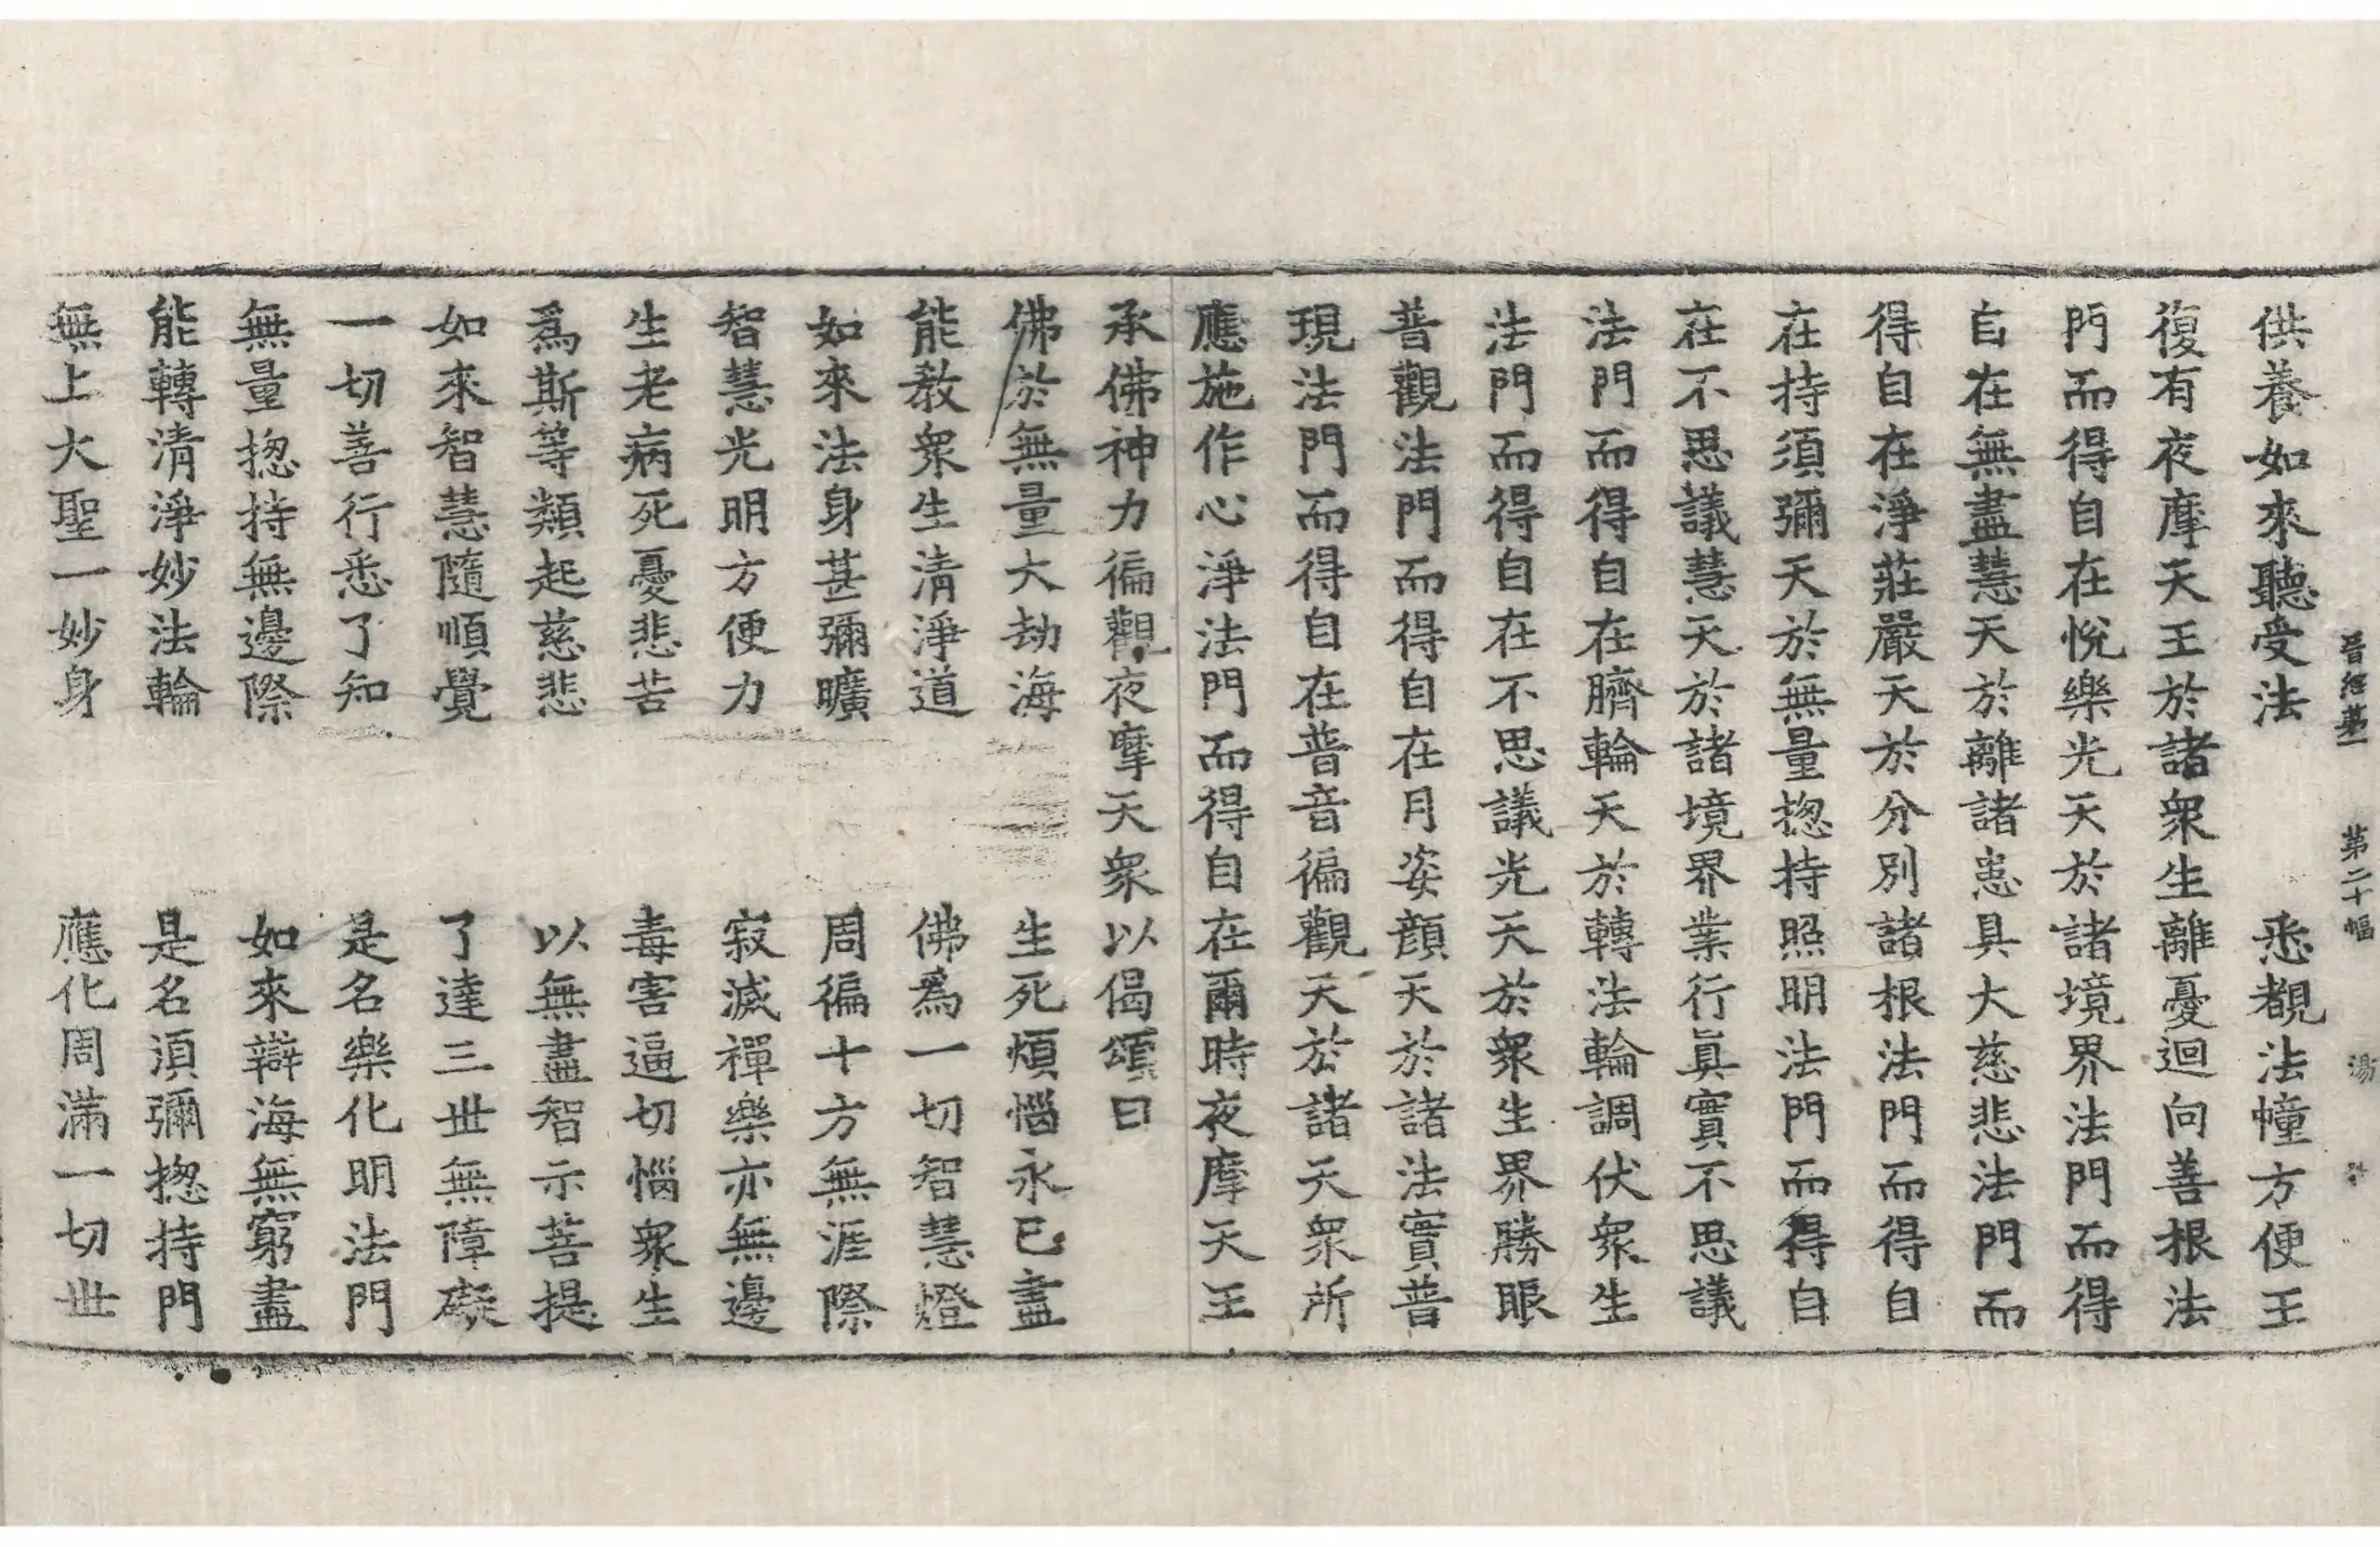 晋經第一 第二十幅 湯
供養如來聽受法 悉覩法幢方便王
復有夜摩天王於諸衆生離憂迴向善根法
門而得自在悅樂光天於諸境界法門而得
自在無盡慧天於離諸恚具大慈悲法門而
得自在淨莊嚴天於分別諸根法門而得自
在持須彌天於無量揔持照明法門而得自
在不思議慧天於諸境界業行眞實不思議
法門而得自在臍輪天於轉法輪調伏衆生
法門而得自在不思議光天於衆生界勝眼
普觀法門而得自在月姿顔天於諸法實普
現法門而得自在普音徧觀天於諸天衆所
應施作心淨法門而得自在爾時夜摩天王
承佛神力徧觀夜摩天衆以偈頌曰
佛於無量大劫海 生死煩惱永已盡
能教衆生清淨道 佛爲一切智慧燈
如來法身甚彌曠 周徧十方無涯際
智慧光明方便力 寂滅禪樂亦無邊
生老病死憂悲苦 毒害逼切惱衆生
爲斯等類起慈悲 以無盡智示菩提
如來智慧隨順覺 了達三世無障礙
一切善行悉了知 是名樂化明法門
無量揔持無邊際 如來辯海無窮盡
能轉清淨妙法輪 是名須彌揔持門
無上大聖一妙身 應化周滿一切世